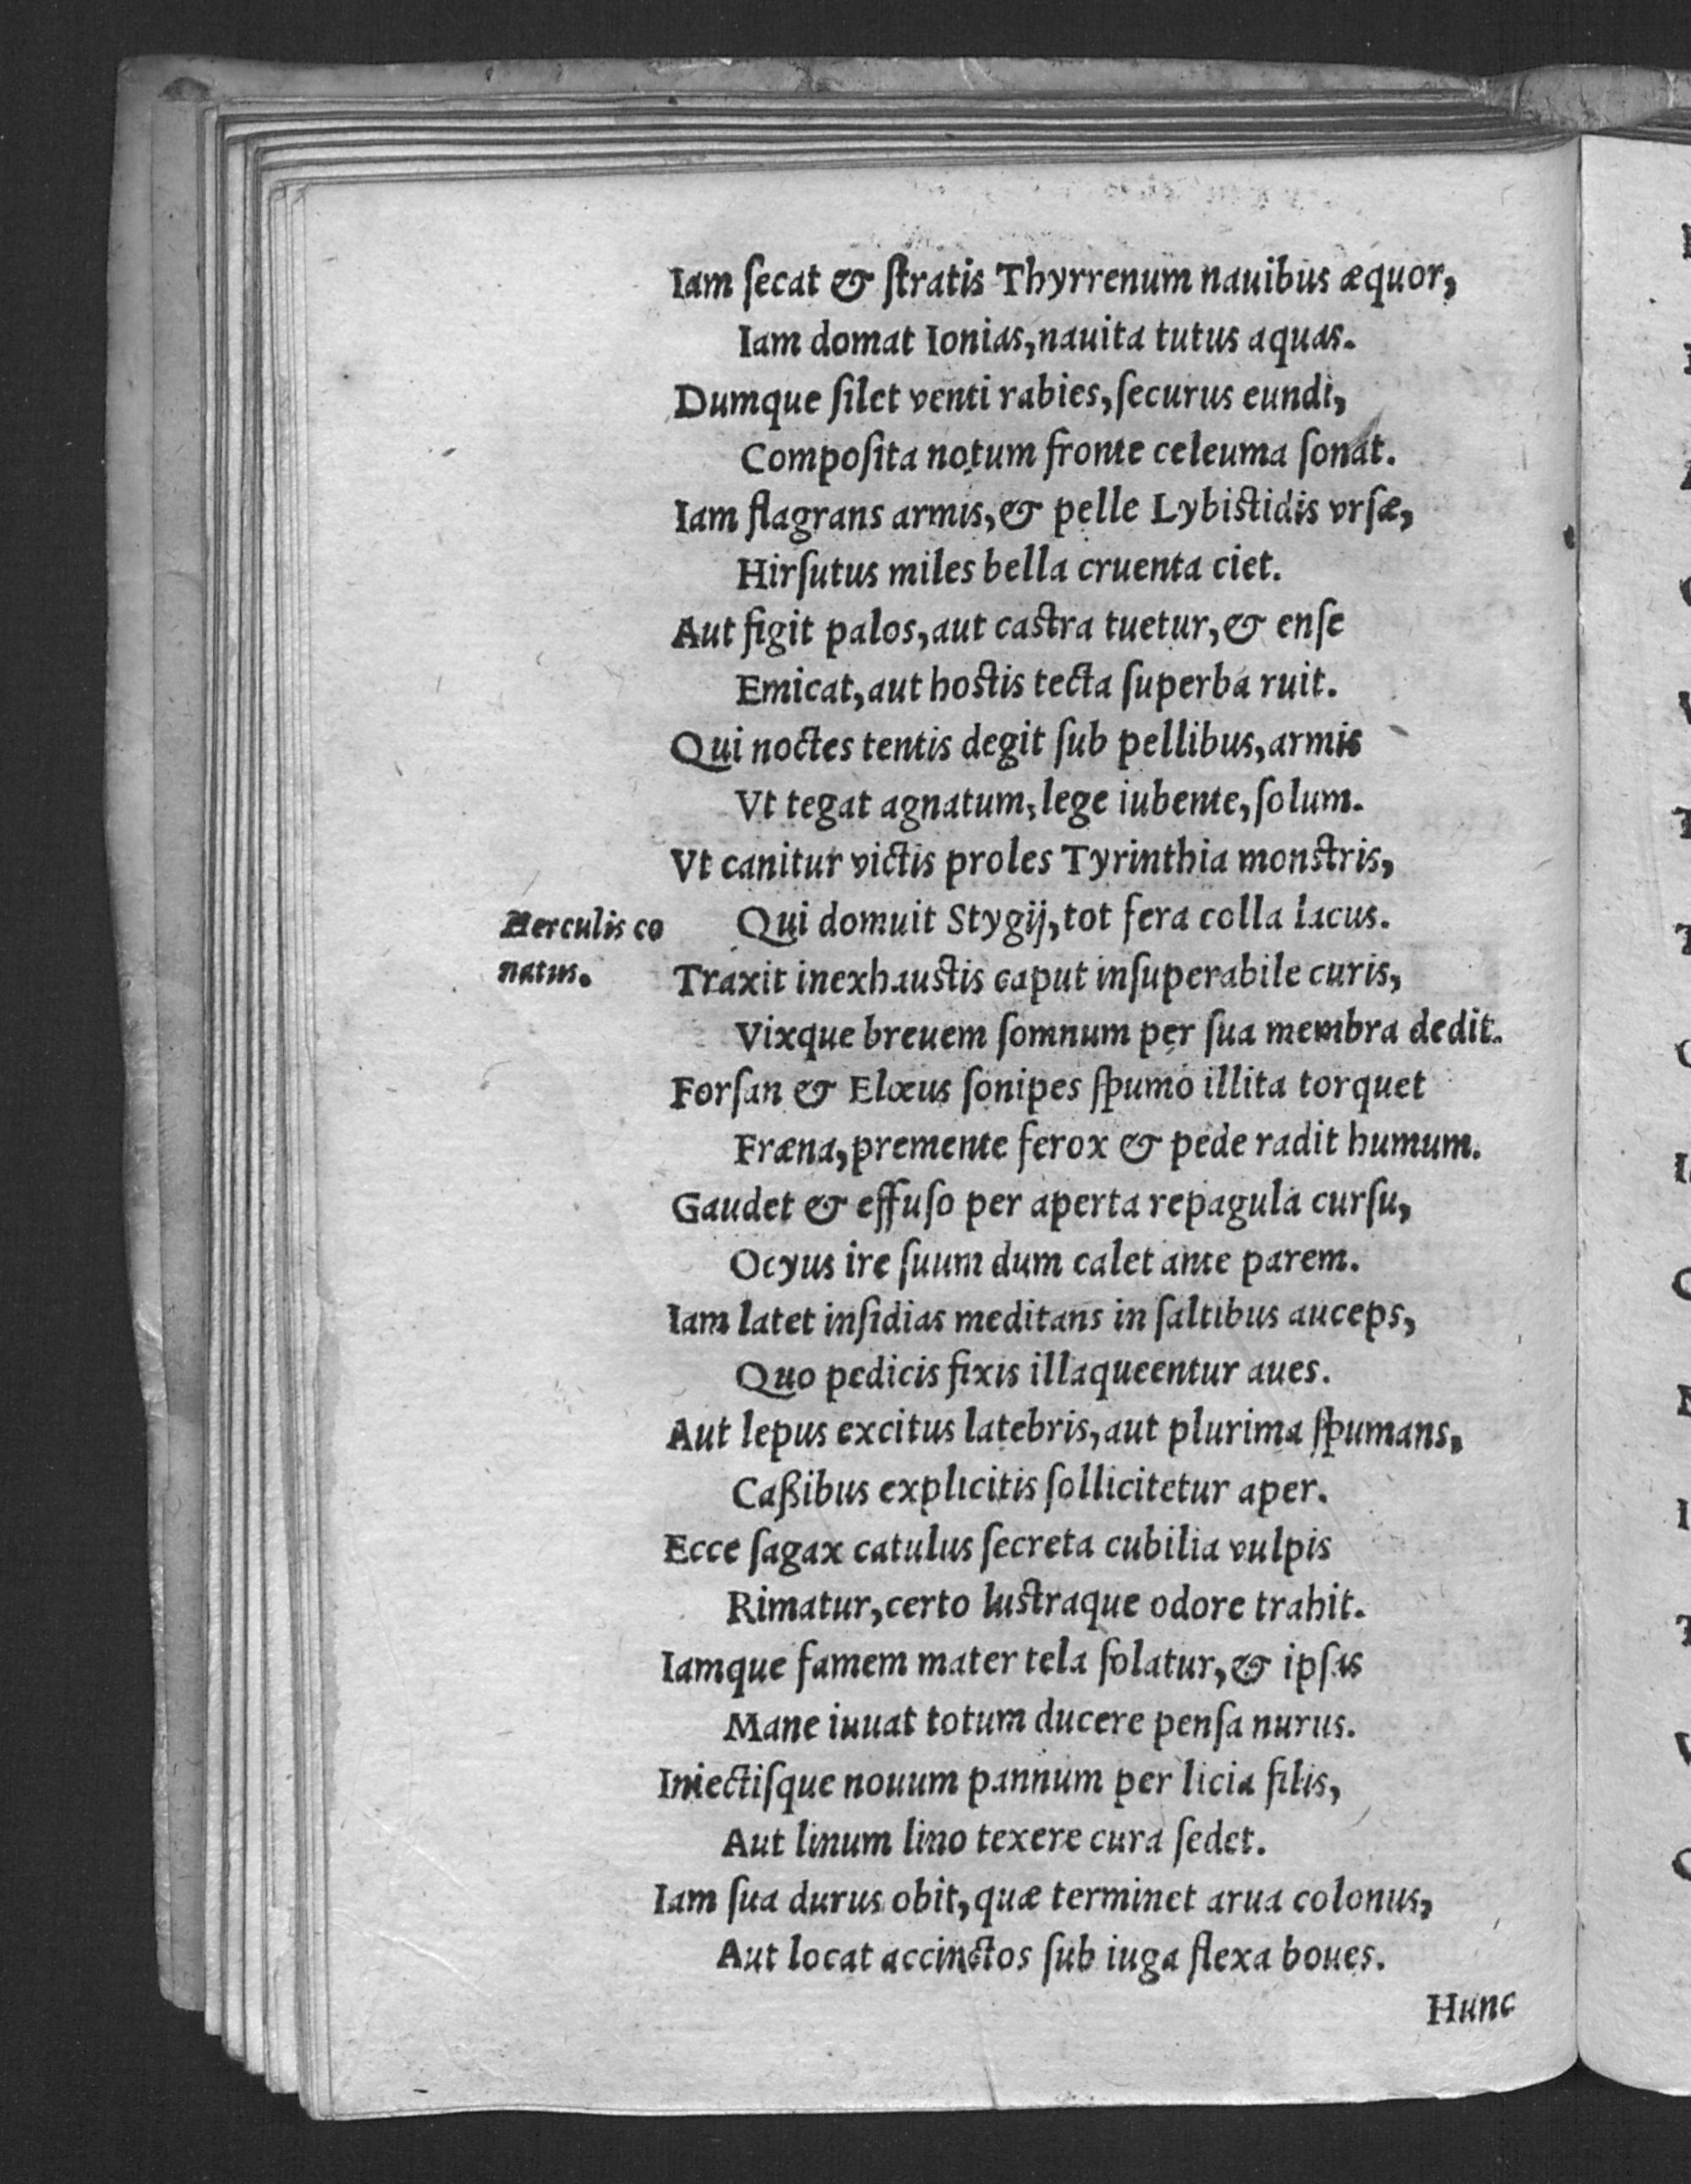 Iam ſecat & ſtratis Thyrrenum nauibus æquor,
Iam domat Ionias, nauita tutus aquas.
Dumque ſilet venti rabies, ſecurus eundi,
Compoſita notum fronte celeuma ſonat.
Iam flagrans armis, & pelle Lybiſtidis vrſæ,
Hirſutus miles bella cruenta ciet.
Aut figit palos, aut caſtra tuetur, & enſe
Emicat, aut hoſtis tecta ſuperba ruit.
Qui noctes tentis degit ſub pellibus, armis
Vt tegat agnatum, lege iubente, ſolum.
Vt canitur victis proles Tyrinthia monſtris,
Herculis co
natus.
Qui domuit Stygij, tot fera colla lacus.
Traxit inexhauſtis caput inſuperabile curis,
Vixque breuem ſomnum per ſua membra dedit.
Forſan & Elœus ſonipes ſpumo illita torquet
Fræna, premente ferox & pede radit humum.
Gaudet & effuſo per aperta repagula curſu,
Ocyus ire ſuum dum calet ante parem.
Iam latet inſidias meditans in ſaltibus auceps,
Quo pedicis fixis illaqueentur aues.
Aut lepus excitus latebris, aut plurima ſpumans,
Caßibus explicitis ſollicitetur aper.
Ecce ſagax catulus ſecreta cubilia vulpis
Rimatur, certo luſtraque odore trahit.
Iamque famem mater tela ſolatur, & ipſas
Mane iuuat totum ducere penſa nurus.
Iniectiſque nouum pannum per licia filis,
Aut linum lino texere cura ſedet.
Iam ſua durus obit, quæ terminet arua colonus,
Aut locat accinctos ſub iuga flexa boues.
Hunc